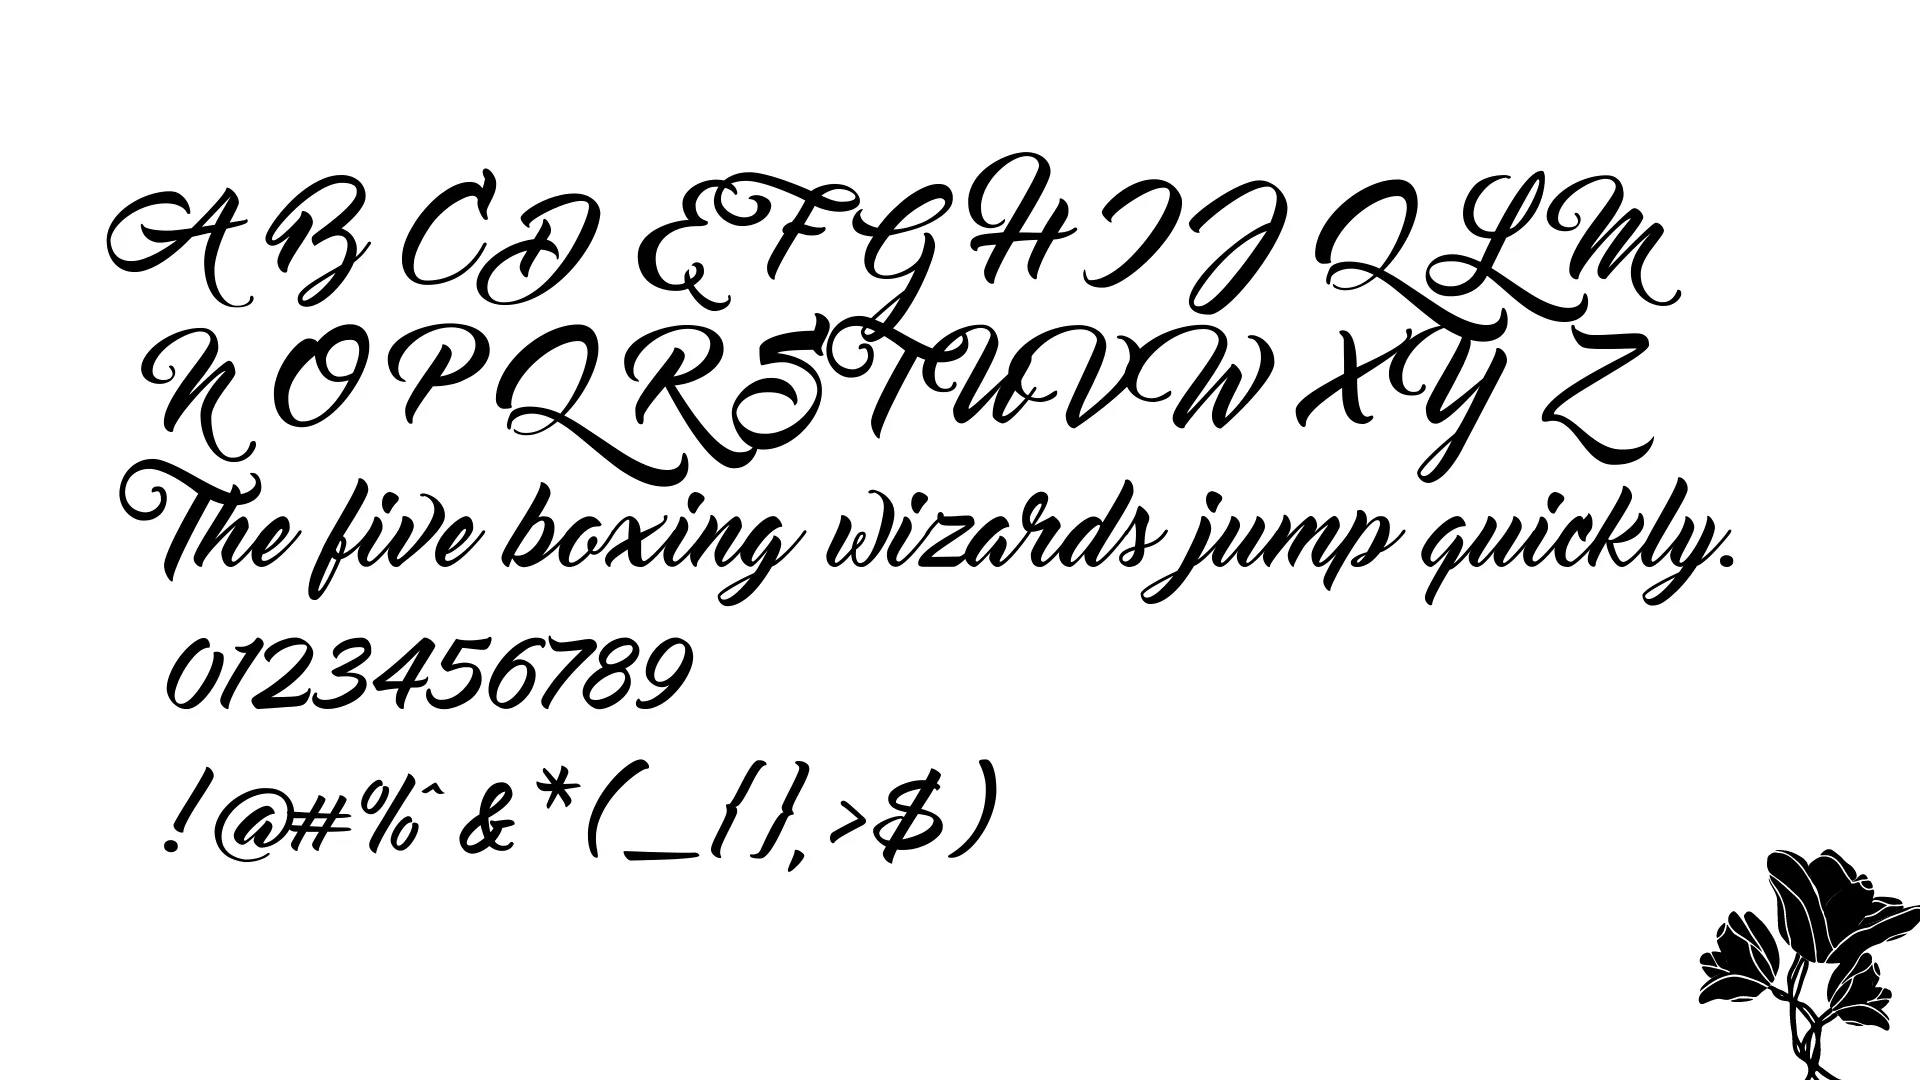 ABCDEFGHIJQLM
NOPQRSTUVWXYZ
The five boxing wizards jump quickly.
0123456789
!@#%^&*(_{},>$)